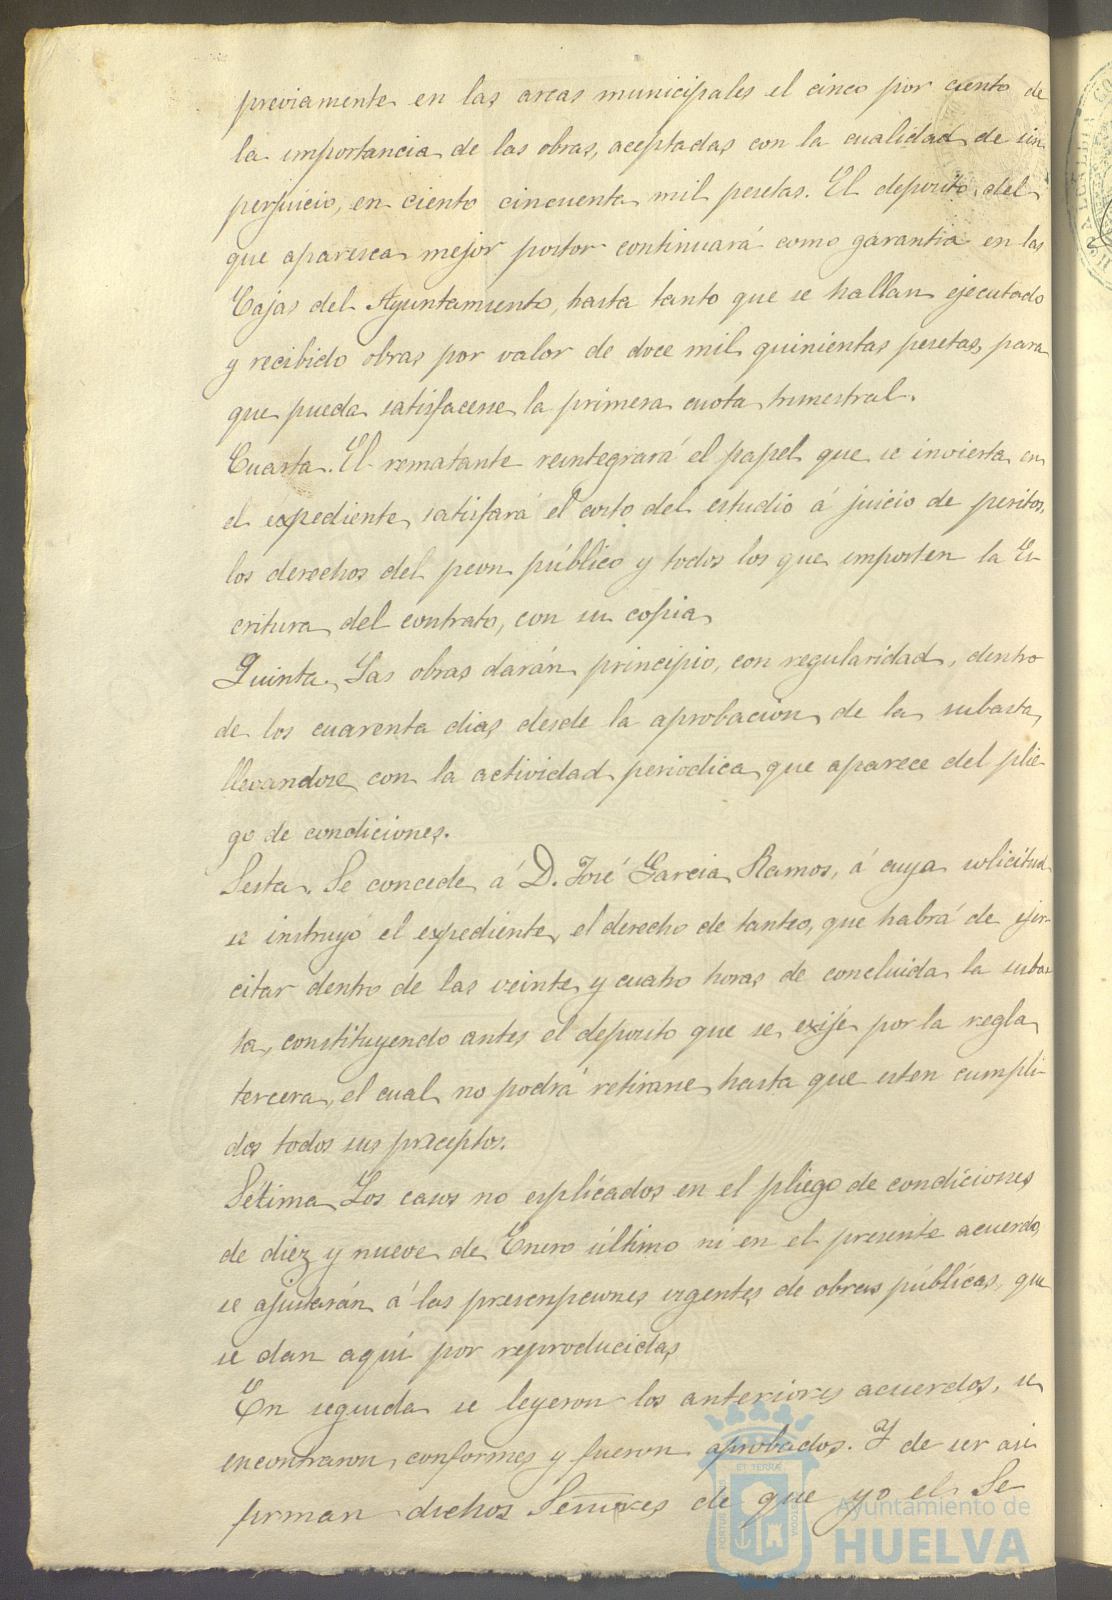 previamente en las arcas municipales el cinco por ciento de
la importancia de las obras, aceptadas con la cualidad de sin
perjuicio, en ciento cincuenta mil pesetas. El deposito del
que aparesca mejor postor continuará como garantia en las
Cajas del Ayuntamiento, hasta tanto que se hallan ejecutado
y recibido obras por valor de doce mil quinientas pesetas, para
que pueda satisfacerse la primera cuota trimestral.
Cuarta. El rematante reintegrará el papel que se invierta en
el expediente, satisfará el costo del estudio á juicio de peritos,
los derechos del peon público y todos los que importen la Es-
critura del contrato, con su copia
Quinta. Las obras darán principio, con regularidad, dentro
de los cuarenta dias desde la aprobacion de la subasta,
llevandose con la actividad periodica que aparece del plie-
go de condiciones.
Sesta. Se concede á D. José Garcia Ramos, á cuya solicitud
se instruyó el expediente, el derecho de tanteo, que habrá de ejer-
citar dentro de las veinte y cuatro horas de concluida la subas-
ta, constituyendo antes el deposito que se exije por la regla
tercera, el cual no podrá retirarse hasta que esten cumpli-
dos todos sus preceptos.
Sétima Los casos no esplicados en el pliego de condiciones
de diez y nueve de Enero último ni en el presente acuerdo,
se ajustarán á las prescripciones vigentes de obras públicas, que
se dan aquí por reproducidas
En seguida se leyeron los anteriores acuerdos, se
encontraron conformes y fueron aprobados. Y de ser asi
firman dichos Señores de que yo el Se
Ayuntamiento de
HUELVA